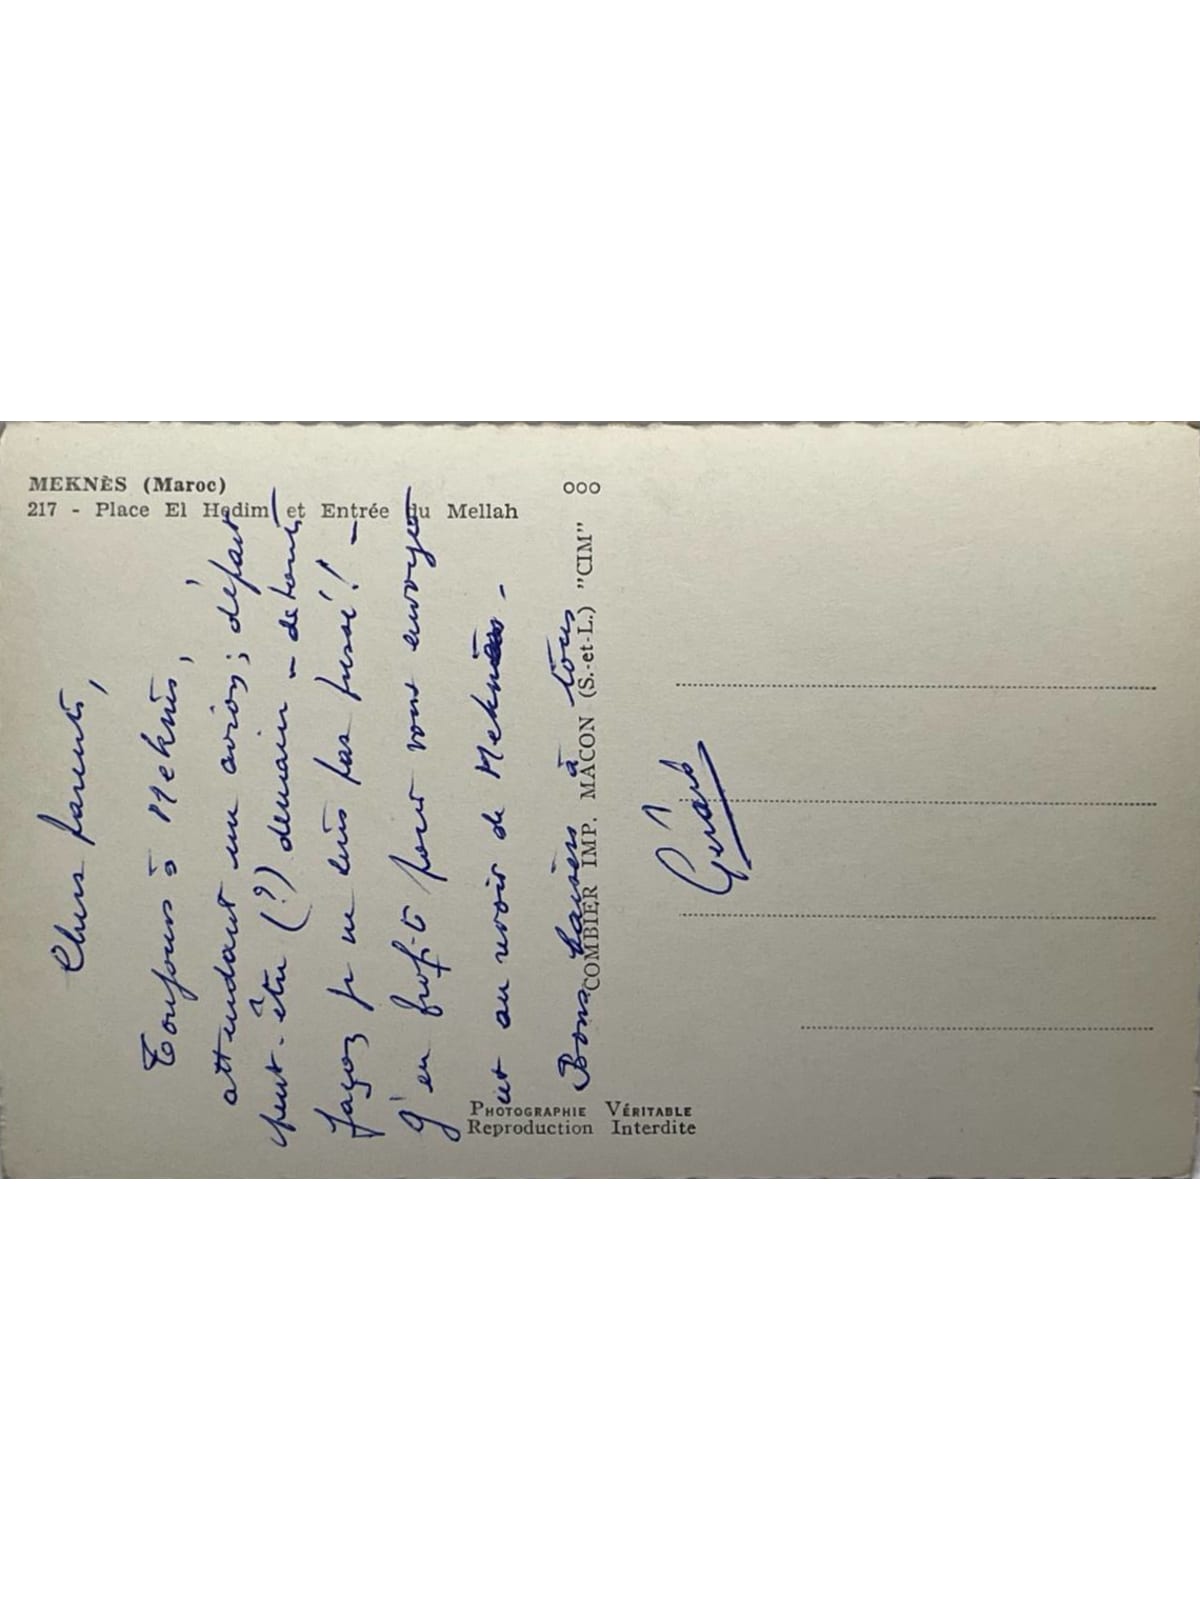 MEKNÈS (Maroc)
217 - Place El Hedim et Entrée du Mellah
Chers parents,
Toujours à Meknès,
attendant un avion ; départ
peut-être (?) demain - de toute
façon je ne suis pas pressé ! -
J'en profite pour vous envoyer
cet au revoir de Meknès -
Bons baisers à tous
Gérard
COMBIER IMP. MACON (S.-et-L.) "CIM"
PHOTOGRAPHIE VÉRITABLE
Reproduction Interdite